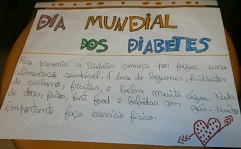 DIA MUNDIAL
DOS DIABETES
Para prevenir a Diabetes começo por fazer uma
alimentação saudável. À base de legumes, hidratos
de carbono, frutas, e beba muita água. Nada
de doces, fritos, fast food e bebidas com gás. Muito
importante faça exercício físico.